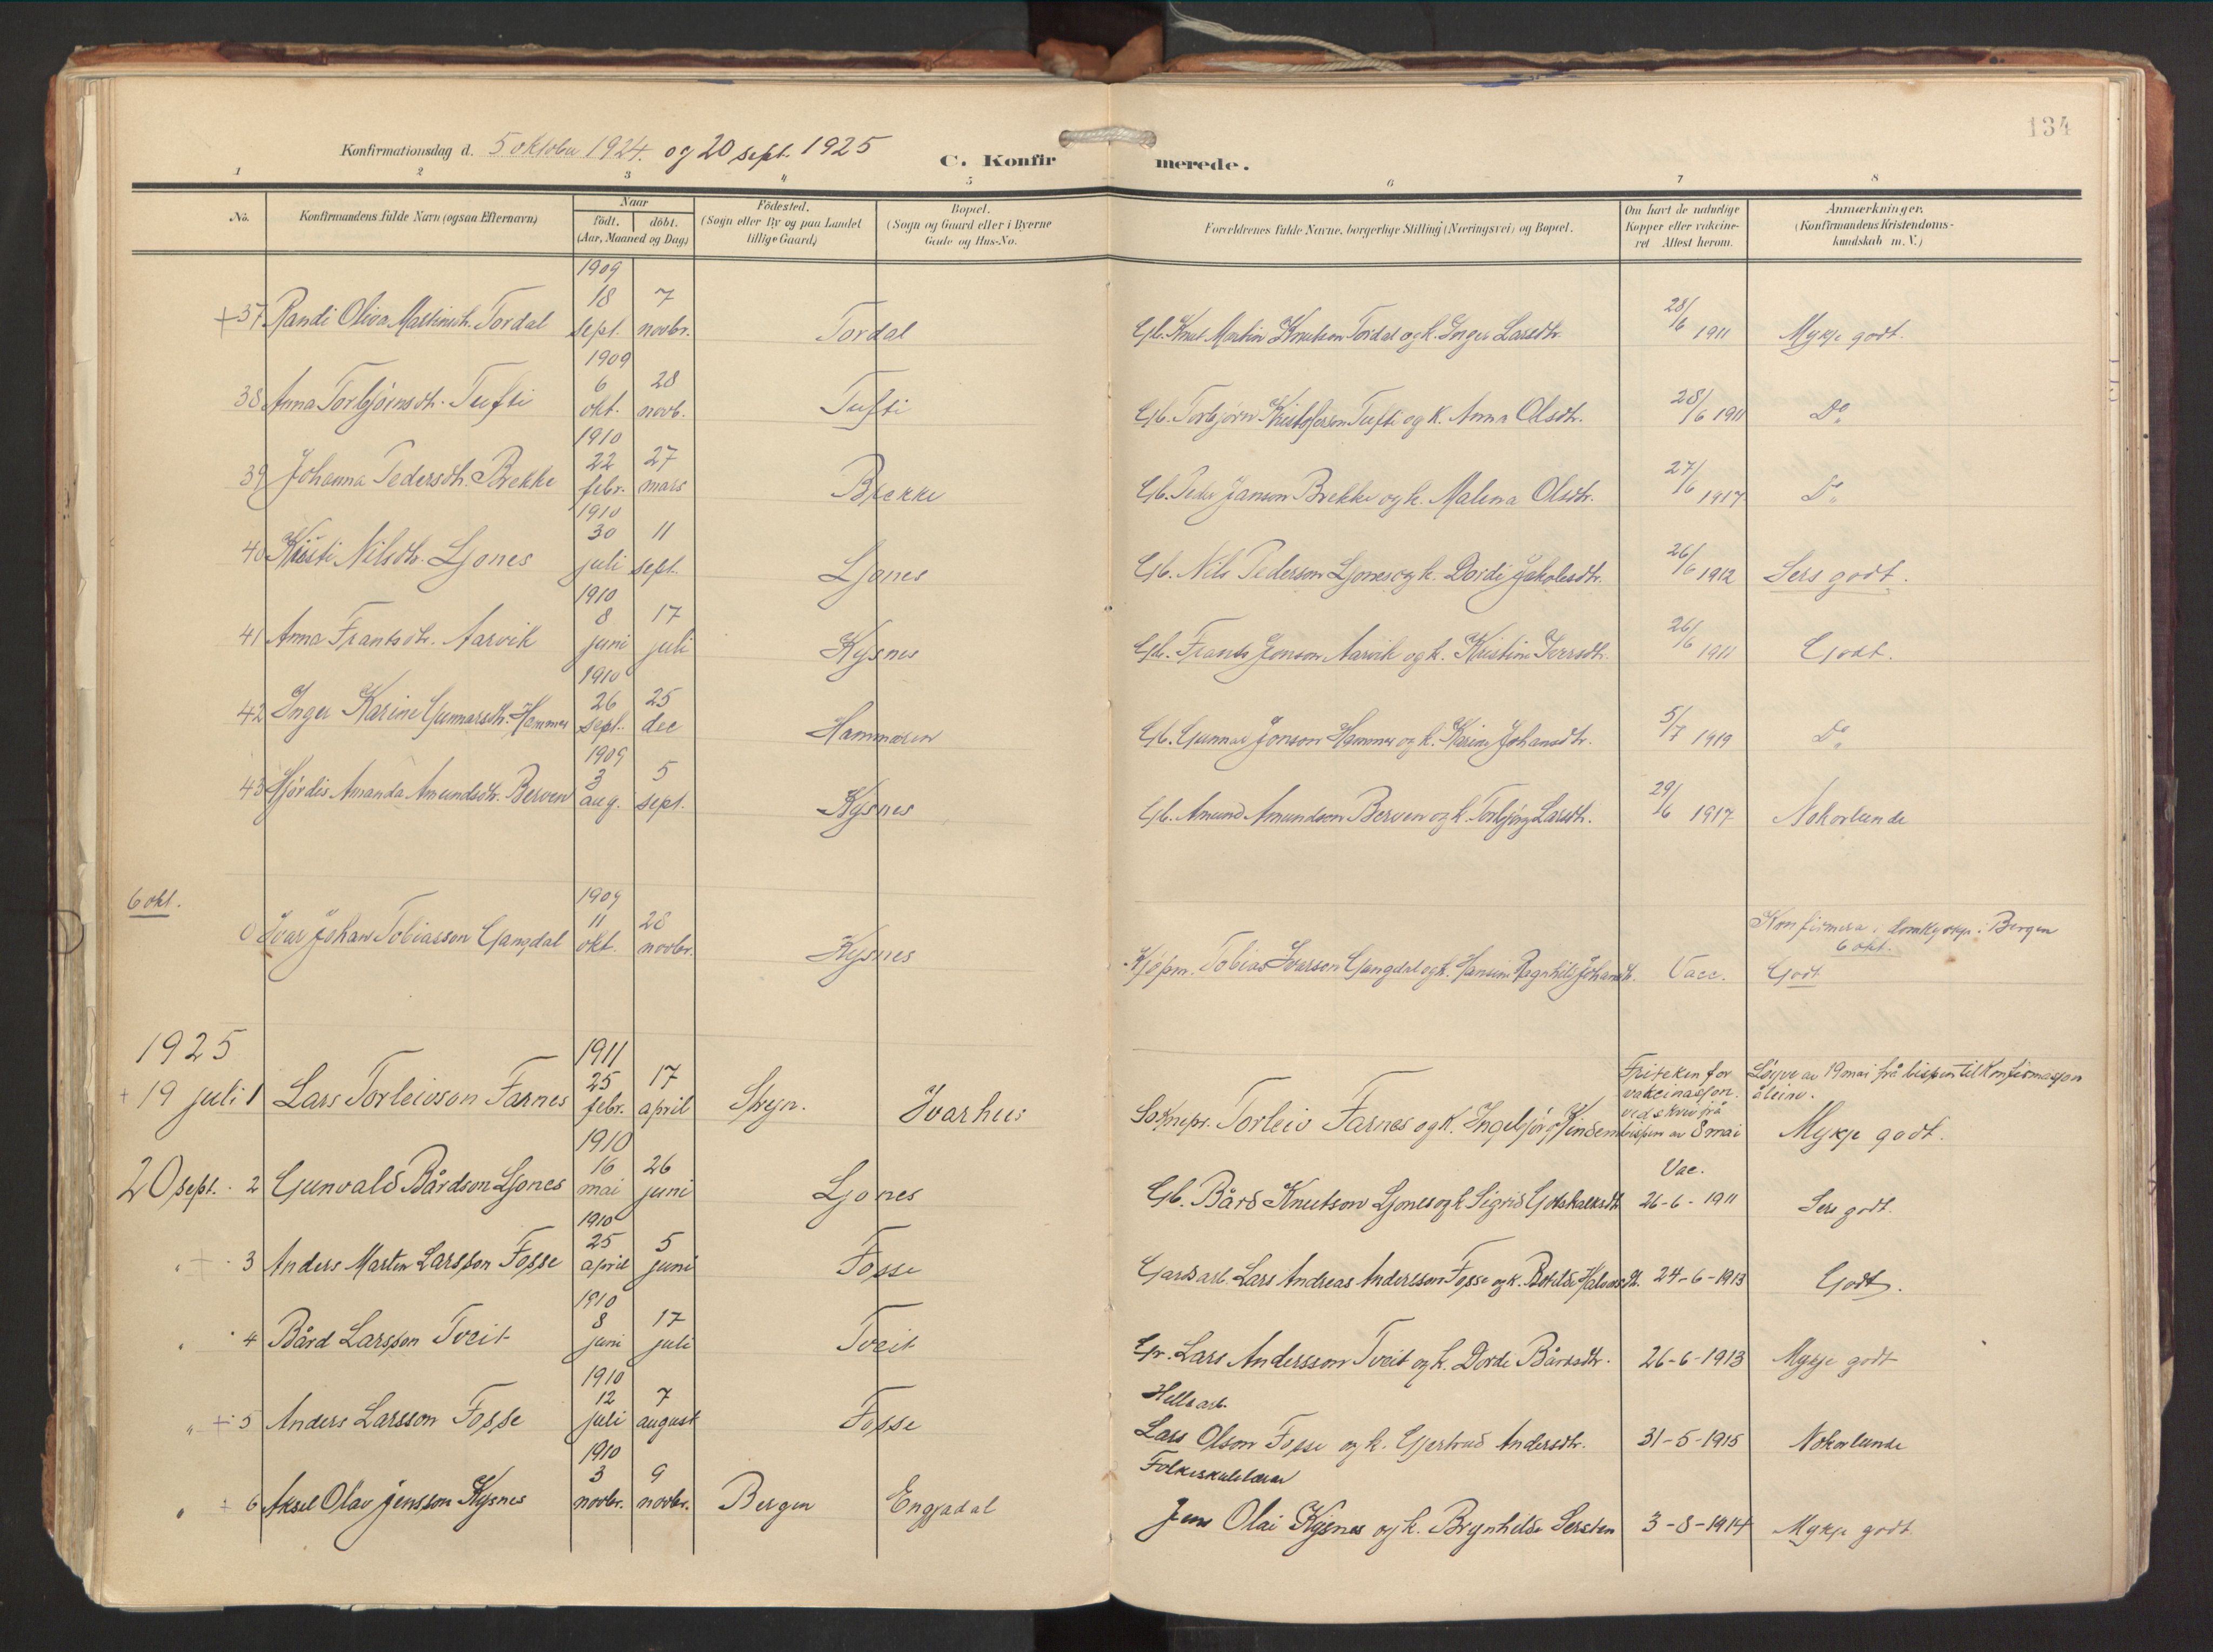 134
Konfirmationsdag d. 5 oktober 1924. og 20 sept. 1925
C. Konfirmerede.
1 2 3 4 5 6 7 8
No. Konfirmandens fulde Navn (ogsaa Efternavn) Naar födt. döbt. (Aar, Maaned og Dag) Födested. (Sogn eller By og paa Landet tillige Gaard) Bopæl. (Sogn og Gaard eller i Byerne Gade og Hus-No. Forældrenes fulde Navne, borgerlige Stilling (Næringsvei) og Bopæl. Om havt de naturlige Kopper eller vakcineret Attest herom. Anmærkninger. (Konfirmandens Kristendomskundskab m. V.)
+ 37 Randi Oliva Martinsdt. Tordal 1909 18 sept. 7 novbr. Tordal Gb. Knut Martin Knutson Tordal og k. Inger Larsdtr. 28/6 1911 Mykje godt.
38 Anna Torbjørnsdt. Tufti 1909 6 okt. 28 novb. Tufti Gb. Torbjørn Kristoferson Tufti og k. Anna Olsdtr. 28/6 1911 Do
39 Johanna Pedersdt. Brekke 1910 22 febr. 27 mars Brekke Gb. Peder Janson Brekke og k. Malena Olsdtr. 27/6 1917 Do
40 Kristi Nilsdtr. Ljones 1910 30 juli 11 sept. Ljones Gb. Nils Pederson Ljones og k. Dordi Jakobsdtr. 26/6 1912 Sers godt.
41 Anna Frantsdtr. Aarvik 1910 8 juni 17 juli Kysnes Gb. Frants Jonson Aarvik og k. Kristine Iversdtr. 26/6 1911 Godt.
42 Inger Karine Gunnarsdtr. Hammer 1910 26 sept. 25 dec Hammaren Gb. Gunnar Jonson Hammer og k. Karine Johansdtr. 5/7 1919 Do
43 Hjördis Amanda Amundsdtr. Berven 1909 3 aug. 5 sept. Kysnes Gb. Amund Amundson Berven og k. Torbjörg Larsdtr. 29/6 1917 Nokorlunde
6 okt.
0 Ivar Johan Tobiasson Gangdal 1909 11 okt. 28 novbr. Kysnes Kjöpm. Tobias Ivarson Gangdal og k. Hansine Ragnhild Johansdt. Vacc. Konfirmera i domkyrkja i Bergen 6 okt. Godt
1925
+ 19 juli 1 Lars Torleivson Farnes 1911 25 febr. 17 april Stryn. Ivarhus Soknepr. Torleiv Farnes og k. Ingebjörg Vinsen Friteken for vakcinasjon. ved skriv frå bispen av 8 mai Löyve av 19 mai frå bispen til konfirmasjon åleine. Mykje godt.
20 sept. 2 Gunvald Bårdson Ljones 1910 16 mai 26 juni Ljones Gb. Bård Knutson Ljones og k. Sigrid Gotskalksdt. Vac. 26-6-1911 Sers godt.
" + 3 Anders Martin Larsson Fosse 1910 25 april 5 juni Fosse Gardsarb. Lars Andreas Andersson Fosse og k. Bothilde Halvorsdt. 24-6-1913 Godt.
" 4 Bård Larsson Tveit 1910 8 juni 17 juli Tveit Gr. Lars Andersson Tveit og k. Dordi Bårdsdtr. 26-6-1913 Mykje godt
" + 5 Anders Larsson Fosse 1910 12 juli 7 august Fosse Hellearb. Lars Olson Fosse og k. Gjertrud Andersdtr. 31-5-1915 Nokorlunde
" + 6 Aksel Olav Jensson Kysnes 1910 3 novbr. 9 novbr. Bergen Engjadal Folkeskulelærar Jens Olai Kysnes og k. Brynhilde Sersten 3-8-1914 Mykje godt.